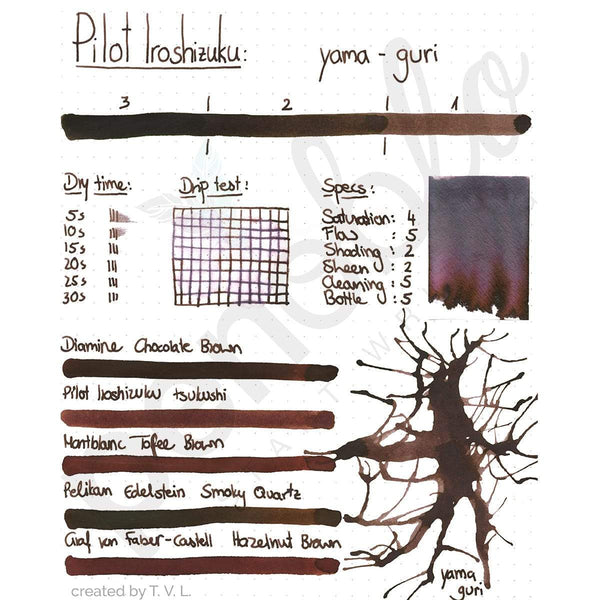 Pilot Iroshizuku: yama-guri
3 2 1
Dry time:
5s
10s
15s
20s
25s
30s
Drip test:
Specs:
Saturation: 4
Flow : 5
Shading : 2
Sheen : 2
Cleaning : 5
Bottle : 5
Diamine Chocolate Brown
Pilot Iroshizuku tsukushi
Montblanc Tofee Brown
Pelikan Edelstein Smoky Quartz
Graf von Faber-Castell Hazelnut Brown
yama
guri
created by T. V. L.